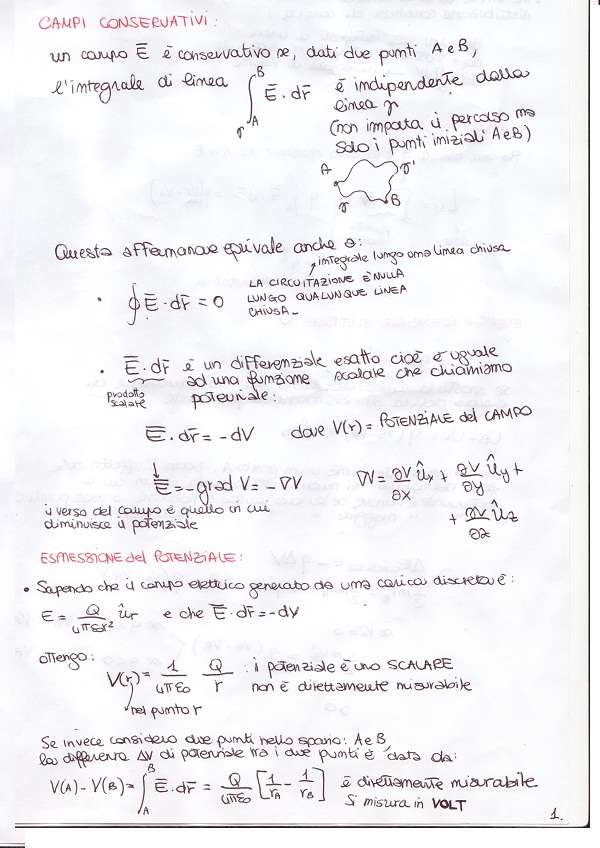 CAMPI CONSERVATIVI:
un campo E̅ è conservativo se, dati due punti A e B,
l'integrale di linea ∫ᴬᴮ E̅ · dr̅ è indipendente dalla
γ linea γ
(non importa il percorso ma
solo i punti iniziali A e B)
A γ'
γ B
Questa affermazione equivale anche a:
integrale lungo una linea chiusa
• ∮ E̅ · dr̅ = 0 LA CIRCUITAZIONE È NULLA
LUNGO QUALUNQUE LINEA
CHIUSA_
• E̅ · dr̅ è un differenziale esatto cioè è uguale
prodotto scalare
ad una funzione scalare che chiamiamo
potenziale:
E̅ · dr̅ = -dV dove V(r) = POTENZIALE del CAMPO
E̅ = -grad V = -∇V ∇V = ∂V/∂x ûx + ∂V/∂y ûy +
+ ∂V/∂z ûz
il verso del campo è quello in cui
diminuisce il potenziale
ESPRESSIONE del POTENZIALE:
• Sapendo che il campo elettrico generato da una carica discreta è:
E = Q/4πεr² ûr e che E̅ · dr̅ = -dV
ottengo:
V(r) = 1/4πε₀ Q/r : il potenziale è uno SCALARE
non è direttamente misurabile
nel punto r
Se invece considero due punti nello spazio: A e B,
la differenza ΔV di potenziale tra i due punti è data da:
V(A) - V(B) = ∫ᴬᴮ E̅ · dr̅ = Q/4πε₀ [1/rA - 1/rB] è direttamente misurabile.
Si misura in VOLT
1.